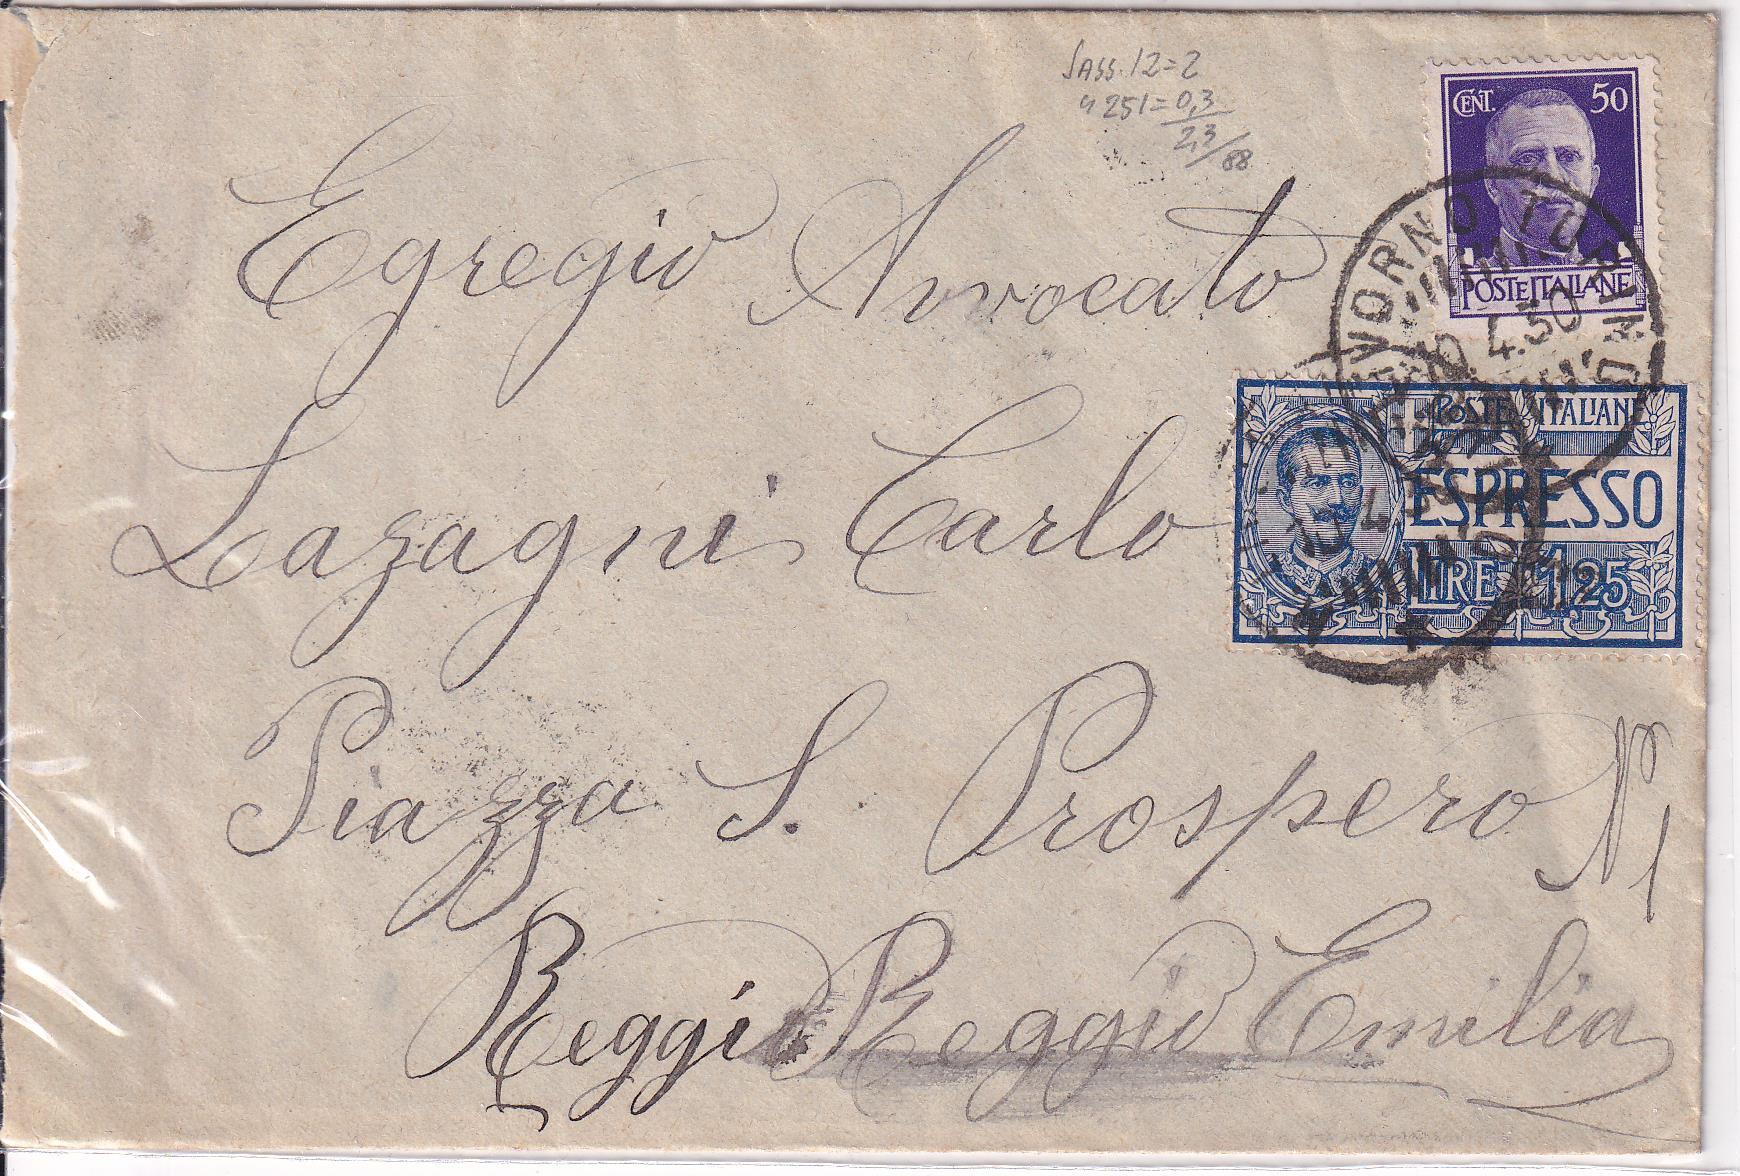 Sass. 12=2
" 251=0,3
2,3/88
CENT. 50
POSTE ITALIANE
LIVORNO TORNI
10 4.30
POSTE ITALIANE
ESPRESSO
LIRE 1,25
10 4 3
Egregio Avvocato
Lazagni Carlo
Piazza S. Prospero N 1
Reggio Reggio Emilia